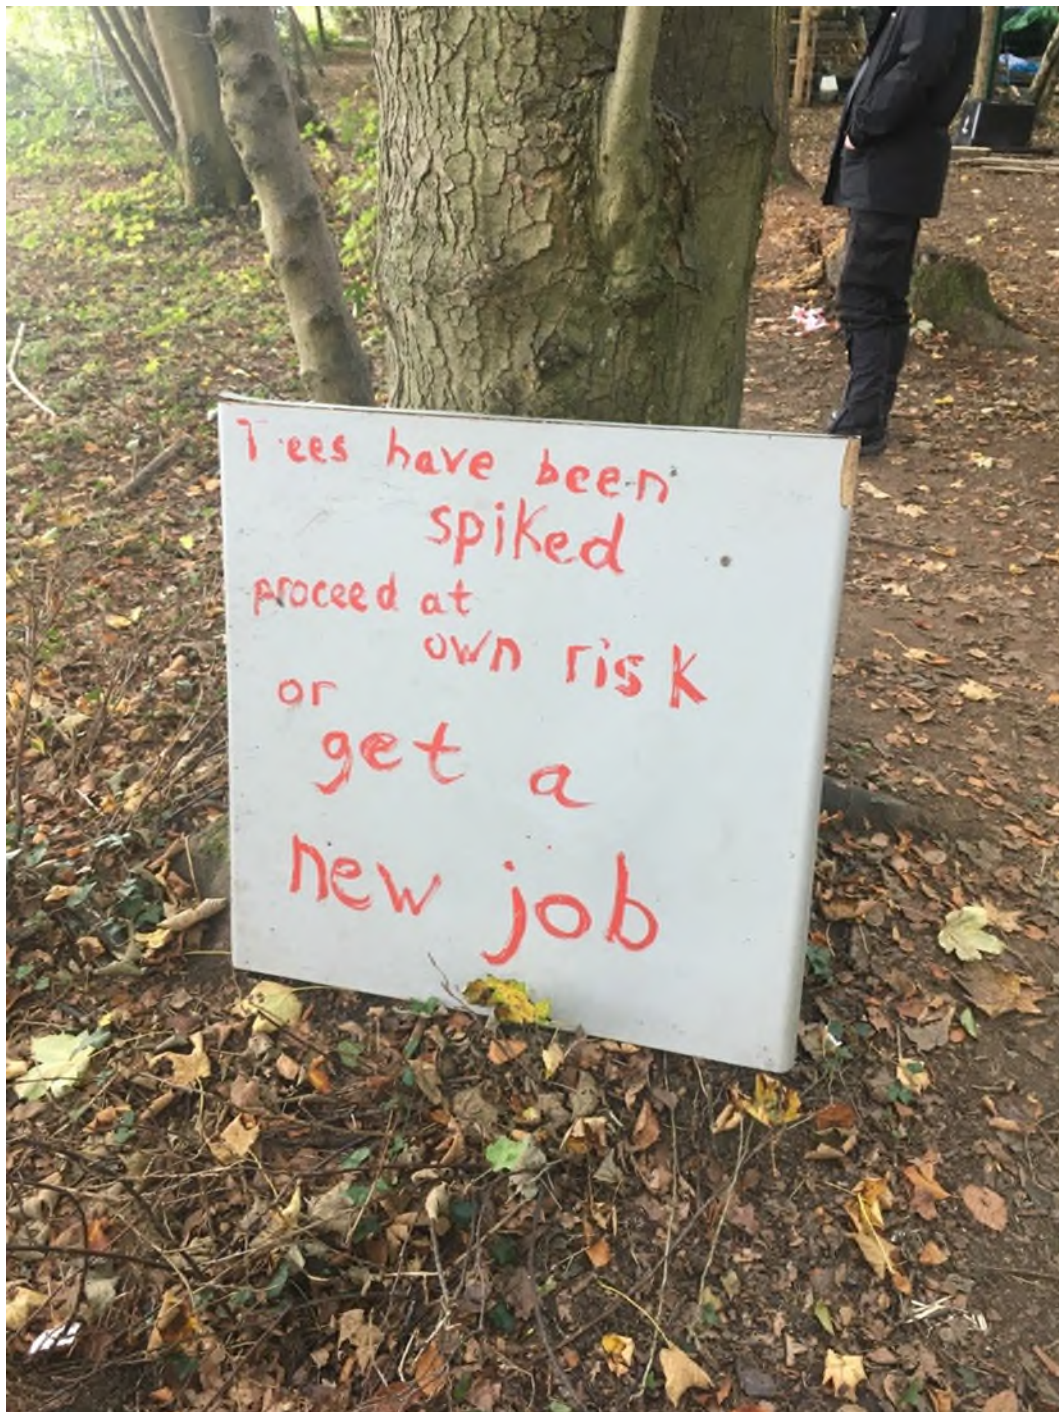 Trees have been
spiked
proceed at
own risk
or
get a
new job